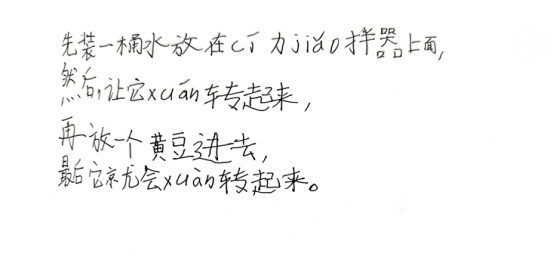 先装一桶水放在cí力jiǎo拌器上面,
然后,让它xuán转起来,
再放一个黄豆进去,
最后它就会xuàn转起来。